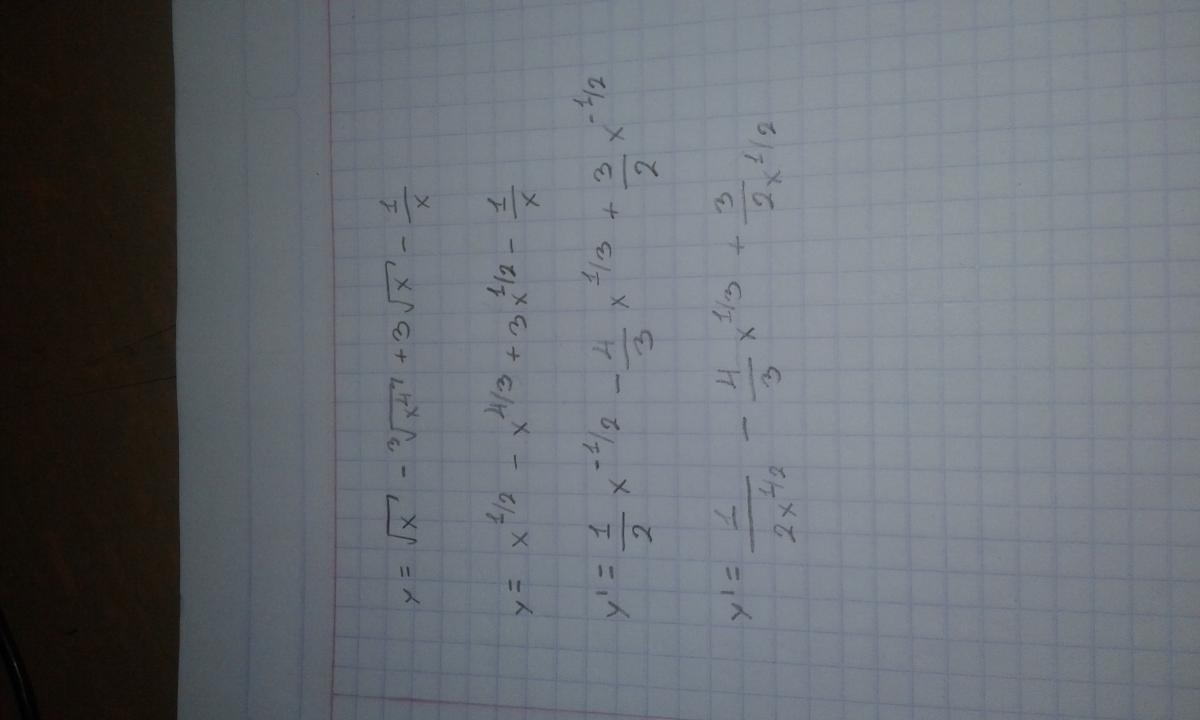 y = √x - ³√x⁴ + 3√x - 1/x
y = x^1/2 - x^4/3 + 3x^1/2 - 1/x
y' = 1/2 x^-1/2 - 4/3 x^1/3 + 3/2 x^-1/2
y' = 1/2x^1/2 - 4/3 x^1/3 + 3/2x^1/2